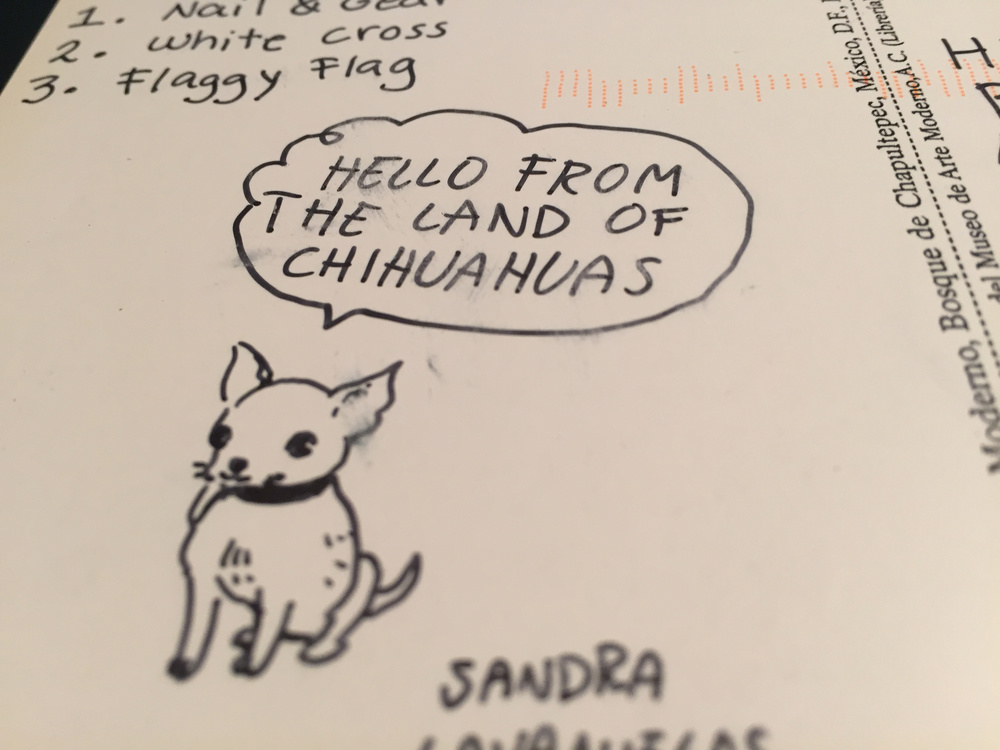 1. Nail & Gear
2. White Cross
3. Flaggy Flag
HELLO FROM
THE LAND OF
CHIHUAHUAS
SANDRA
Moderno, Bosque de Chapultepec, México, D.F.,
del Museo de Arte Moderno, A.C. (Librería